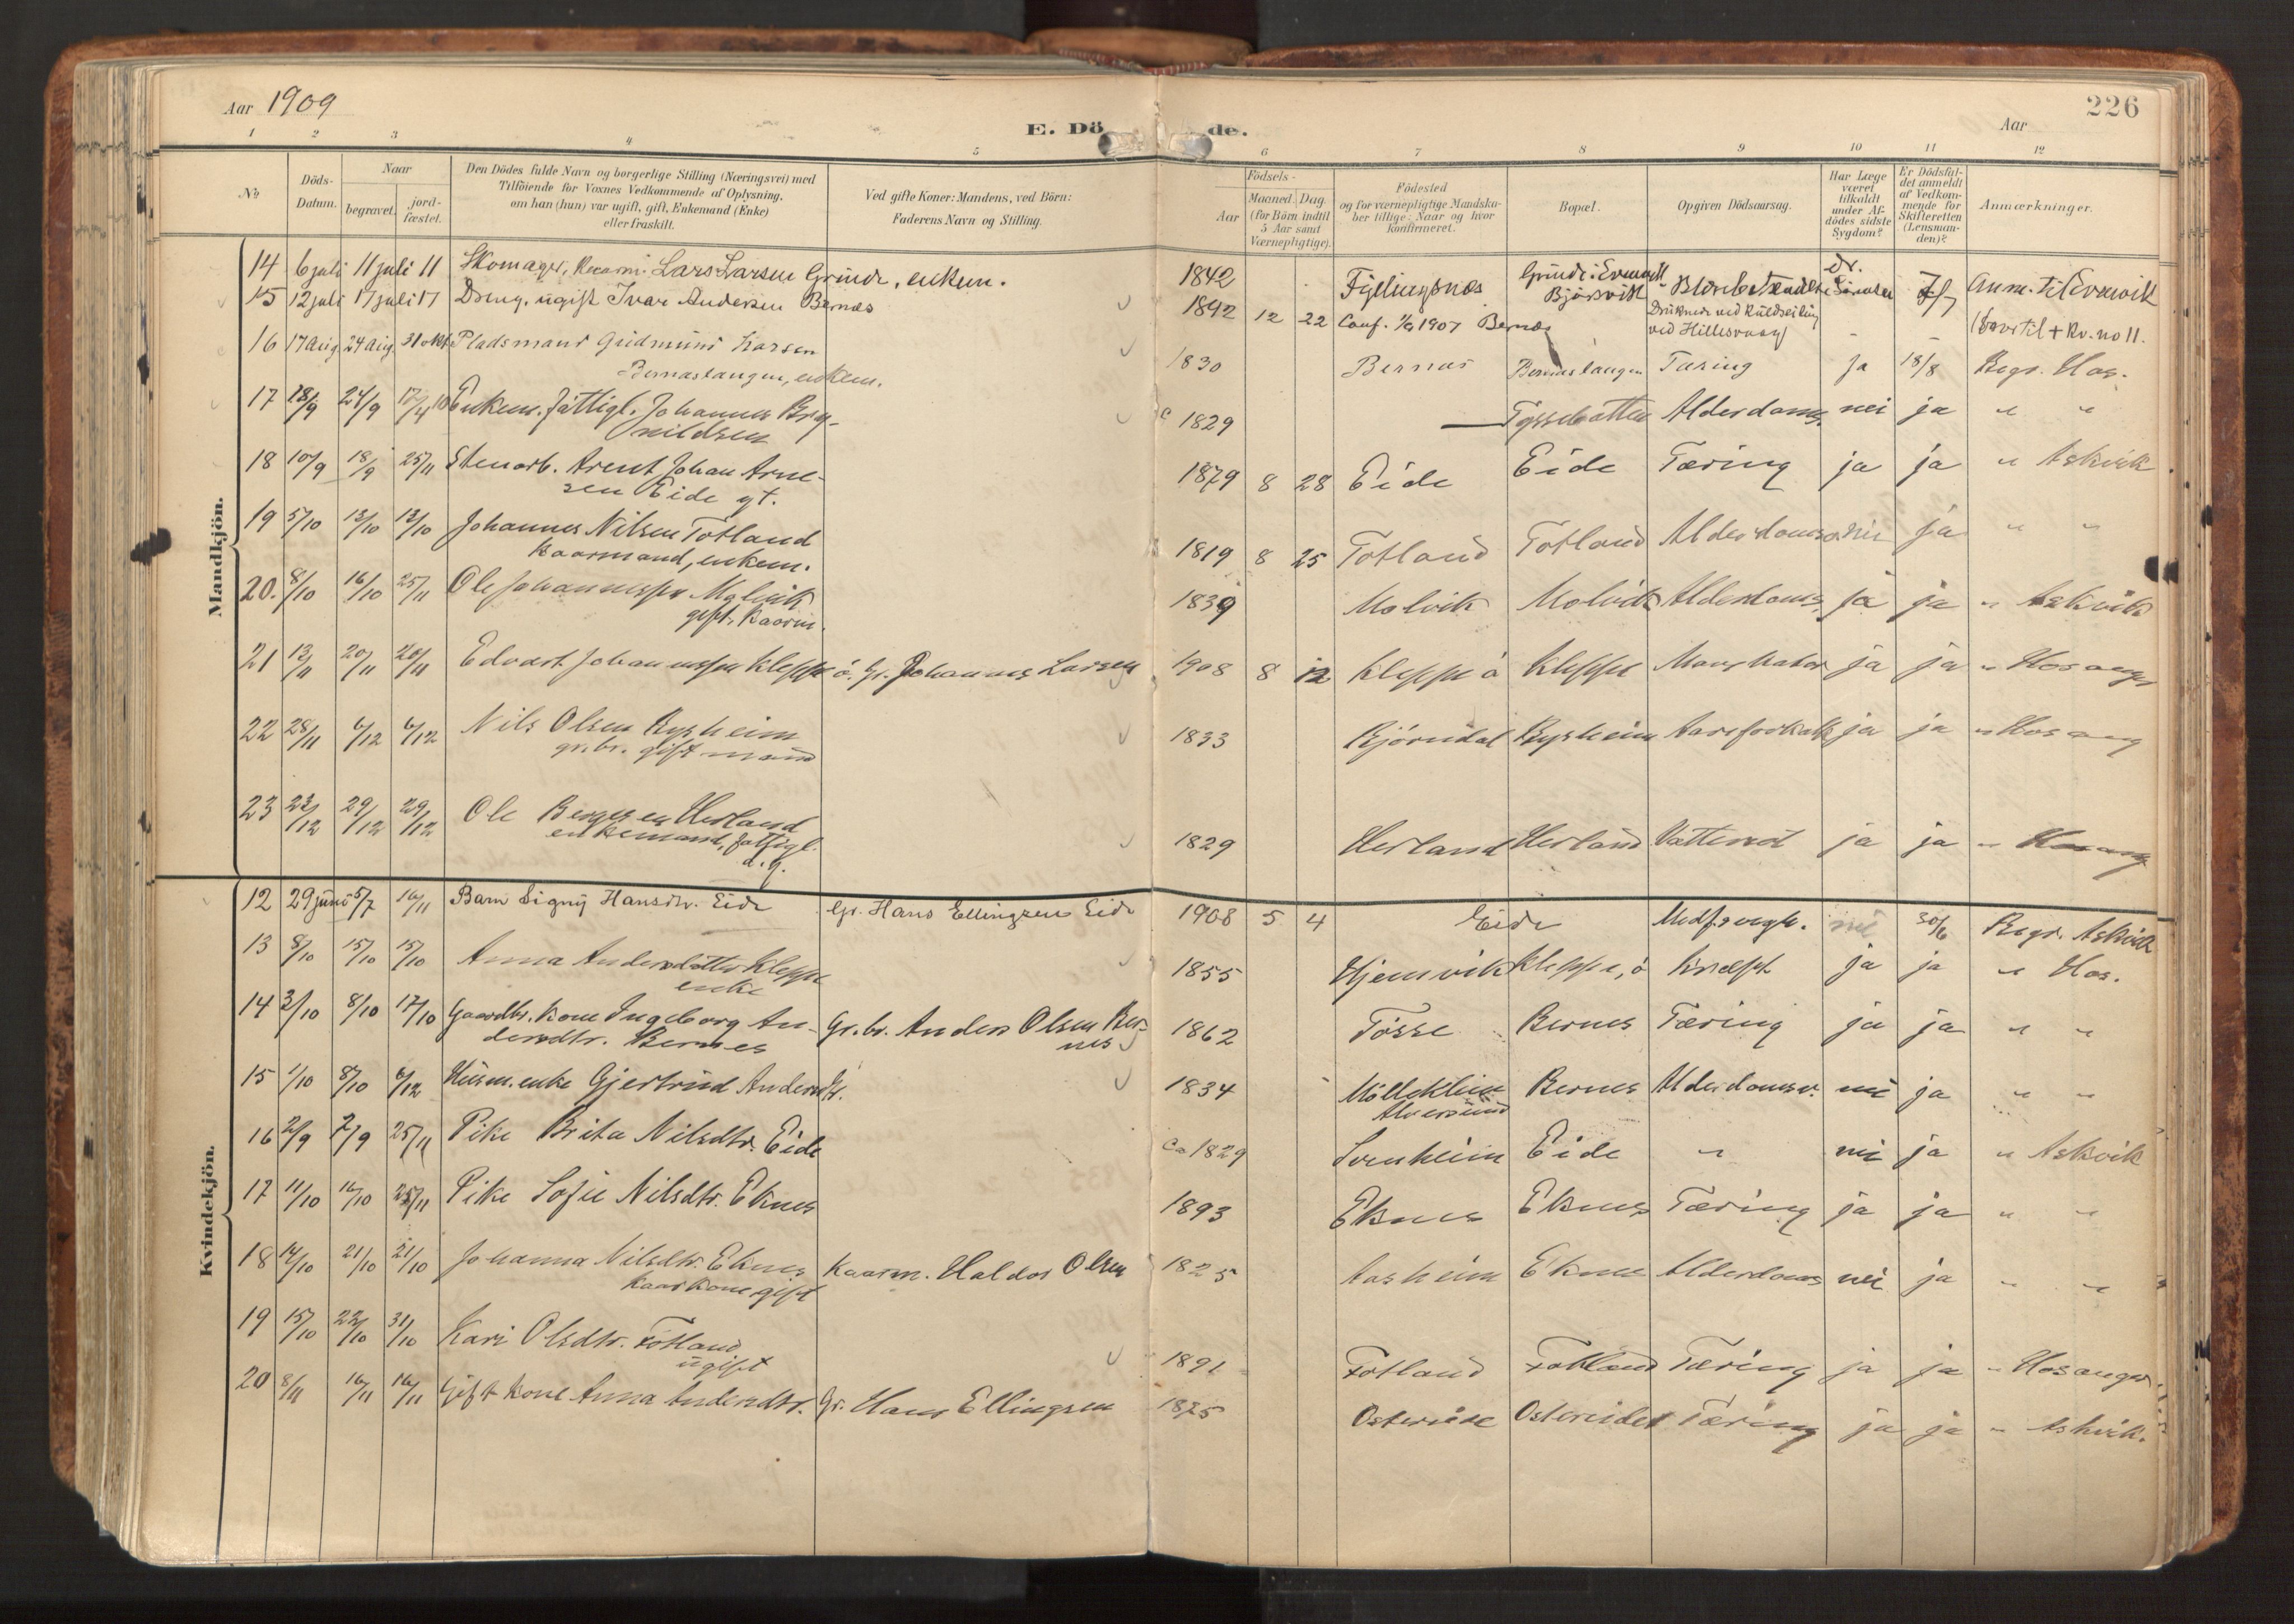 Aar 1909
226
E. Dö de.
Aar
1 2 3 4 5 6 7 8 9 10 11 12
No
Döds-Datum.
Naar
begravet.
jord-fæstet.
Den Dödes fulde Navn og borgerlige Stilling (Næringsvei) med
Tilföiende for Voxnes Vedkommende af Oplysning,
om han (hun) var ugift, gift, Enkemand (Enke)
eller fraskilt.
Ved gifte Koner: Mandens, ved Börn:
Faderens Navn og Stilling.
Födsels-
Aar
Maaned. Dag.
(for Börn indtil
5 Aar samt
Værnepligtige).
Födested
og for værnepligtige Mandska-
ber tillige: Naar og hvor
konfirmeret.
Bopæl.
Opgiven Dödsaarsag.
Har Læge
været
tilkaldt
under Af-
dödes sidste
Sygdom?
Er Dödsfal-
det anmeldt
af Vedkom-
mende for
Skifteretten
(Lensman-
den)?
Anmærkninger.
Mandkjön.
14 6 juli 11 juli 11 Skomager, Lars Larsen Grinde, enkem. 1842 Fyllingsnes Dr. 7/7 Anm. til Evenvik
Bjørsvik
15 12 juli 17 juli 17 Dreng, ugift Ivar Andersen Bernes 1892 12 22 Conf. 1907 Bernes Druknede ved Kuldseiling
ved Hillesvaag
16 17 Aug. 24 Aug. 31 okt. Pladsmand Gudmund Larsen
Bernestangen, enkem. 1830 Bernes Bernestangen Tæring Ja 18/8 Begr. Hos.
17 18/9 24/9 17/4 10 Enkem. fattigl. Johannes Bryn-
nildsen c 1829 — Tyssebotten Alderdoms. nei ja " "
18 10/9 18/9 25/11 Stenarb. Arent Johan Arne-
sen Eide gt. 1879 8 28 Eide Eide Tæring ja ja " Askvik
19 5/10 13/10 13/10 Johannes Nilsen Totland
Kaarmand, enkem. 1819 8 25 Totland Totland nei ja " "
20. 8/10 16/10 25/11 Ole Johannessen Molvik
gift, Kaarm. 1839 Molvik Molvik Alderdoms. ja ja " Askvik
21 13/11 20/11 20/11 Edvart Johannessen Kleppe ö. Gr. Johannes Larsen 1908 8 12 Kleppe ö Kleppe ja ja " Hosanger
22 28/11 6/12 6/12 Nils Olsen Rysheim
gr.br. gift mand 1833 Bjørndal Rysheim ja ja " Hosang
23 23/12 29/12 29/12 Ole Bergesen Herland
enkemand, fattigl.
d.g. 1829 Herland Herland Vattersot ja ja " Hosang
Kvindekjön.
12 29 juni 5/7 16/11 Barn Signy Hansdtr. Eide Gr. Hans Ellingsen Eide 1908 5 4 Eide nei 30/6 Begr. Askvik
13 8/10 15/10 15/10 Anna Andersdatter Kleppe
enke 1855 Hjemvik Kleppe, ö Kræft ja ja " Hos.
14 3/10 8/10 17/10 Gaardbr. kone Ingeborg An-
dersdtr. Bernes Gr.br. Anders Olsen Ber-
nes 1862 Tösse Bernes Tæring ja ja " "
15 1/10 8/10 6/12 Husm. enke Gjertrud Andersdtr. 1834
Alversund Bernes Alderdomsv. nei ja " "
16 2/9 7/9 25/11 Pike Brita Nilsdtr. Eide ca 1829 Eide " nei ja " Askvik
17 11/10 16/10 25/11 Pike Sofie Nilsdtr. Eknes 1893 Eknes Eknes Tæring ja ja " "
18 14/10 21/10 21/10 Johanna Nilsdtr. Eknes
Kaarkone gift Kaarm. Haldor Olsen 1825 Aasheim Eknes Alderdoms nei ja " "
19 15/10 22/10 31/10 Kari Olsdtr. Totland
ugift 1891 Totland Totland Tæring ja ja " Hosanger
20 8/11 16/11 16/11 Gift kone Anna Andersdtr. Gr. Hans Ellingsen 1875 Ostereide Ostereidet Tæring ja ja " Askvik.